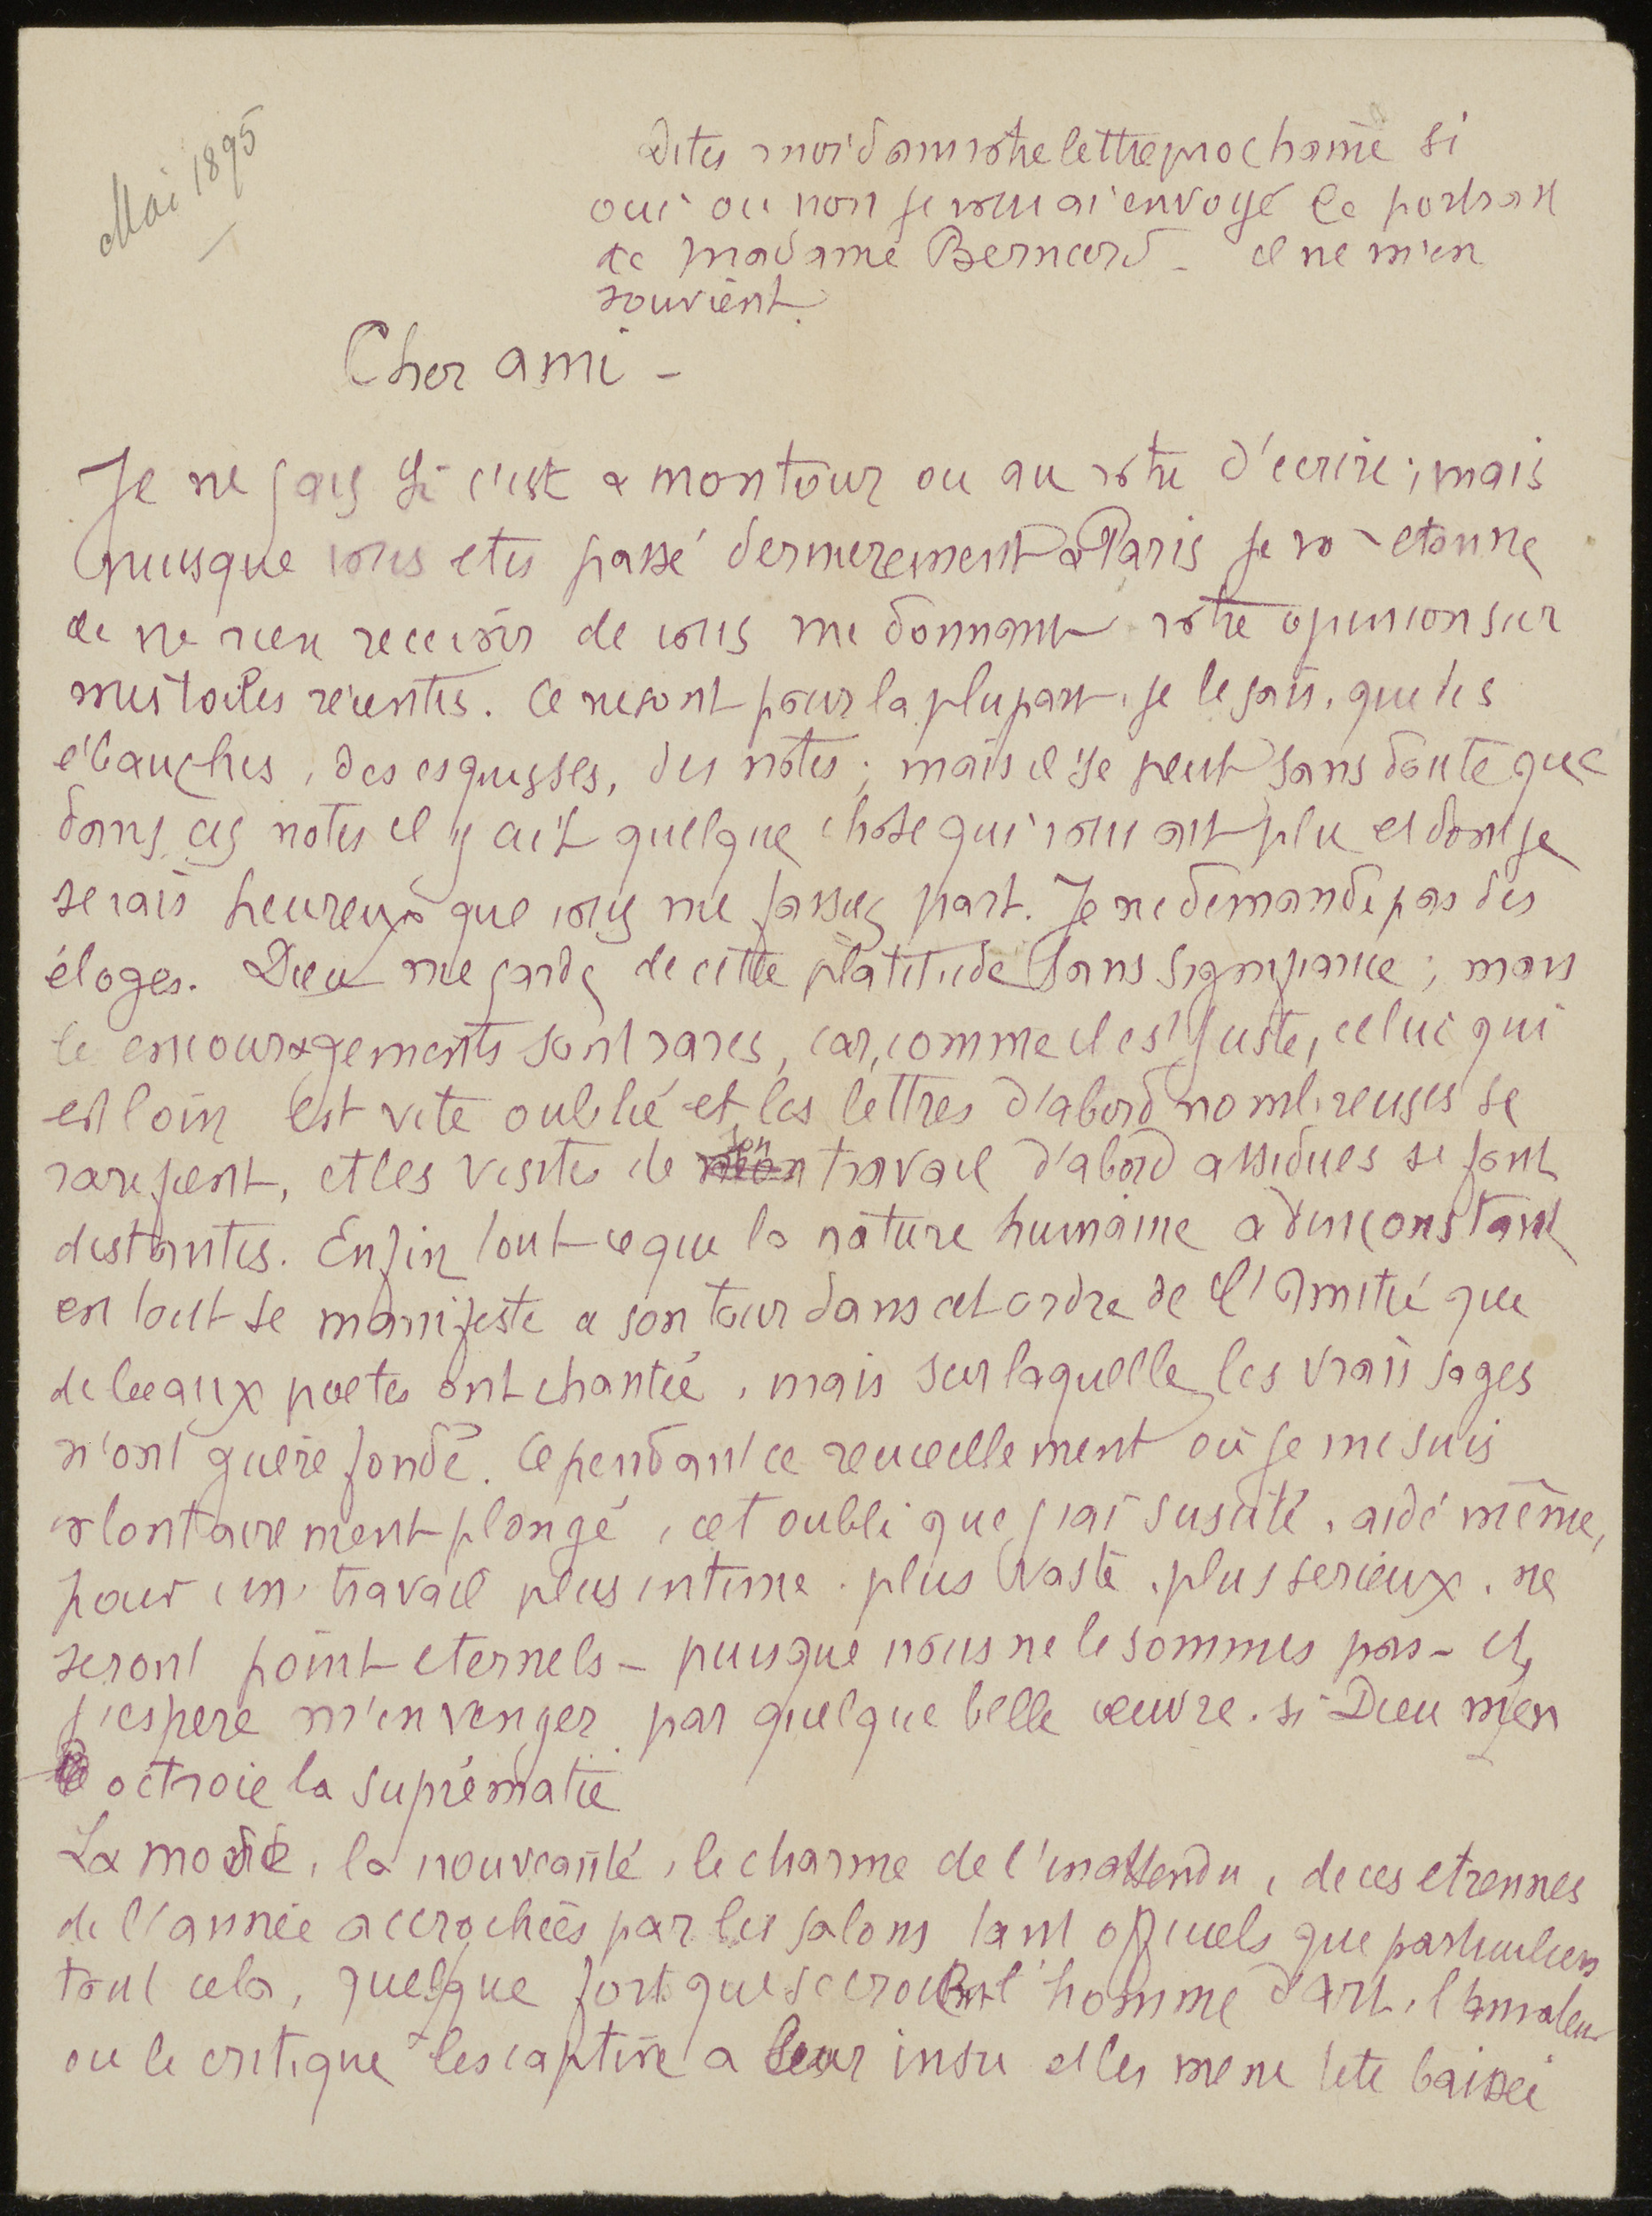 Mai 1895
dites moi dans votre lettre prochaine si
oui ou non je vous ai envoyé le portrait
de madame Bernard - il ne m'en
souvient.
Cher ami -
Je ne sais si c'est a mon tour ou au votre d'ecrire ; mais
puisque vous etes passé dernierement a Paris je m'etonne
de ne rien recevoir de vous me donnant votre opinion sur
mes toiles récentes. Ce ne sont pour la plupart, je le sais, que des
ébauches, des esquisses, des notes ; mais il se peut sans doute que
dans ces notes il y ait quelque chose qui vous ait plu et dont je
serais heureux que vous me fassiez part. Je ne demande pas des
éloges. Dieu me garde de cette platitude sans signifiance ; mais
le encouragements sont rares, car, comme il est juste, celui qui
est loin est vite oublié et les lettres d'abord nombreuses se
rarefient, et les visites de son travail d'abord assidues se font
distantes. Enfin tout ce que la nature humaine a d'inconstant
en tout se manifeste a son tour dans cet ordre de l'Amitié que
de beaux poetes ont chantée, mais sur laquelle les vrais sages
n'ont guère fondé. Cependant ce recueillement où je me suis
volontairement plongé, cet oubli que j'ai suscité, aidé même,
pour un travail plus intime, plus vaste, plus serieux, ne
seront point eternels - puisque nous ne le sommes pas - et
j'espere m'en venger par quelque belle œuvre, si Dieu m'en
octroie la suprématie
La mode, la nouveauté, le charme de l'inattendu, de ces etrennes
de l'année accrochées par les salons tant officiels que particuliers
tout cela, quelque fort que se croient l'homme d'art, l'amateur
ou le critique les captive a leur insu et les mene tete baissée